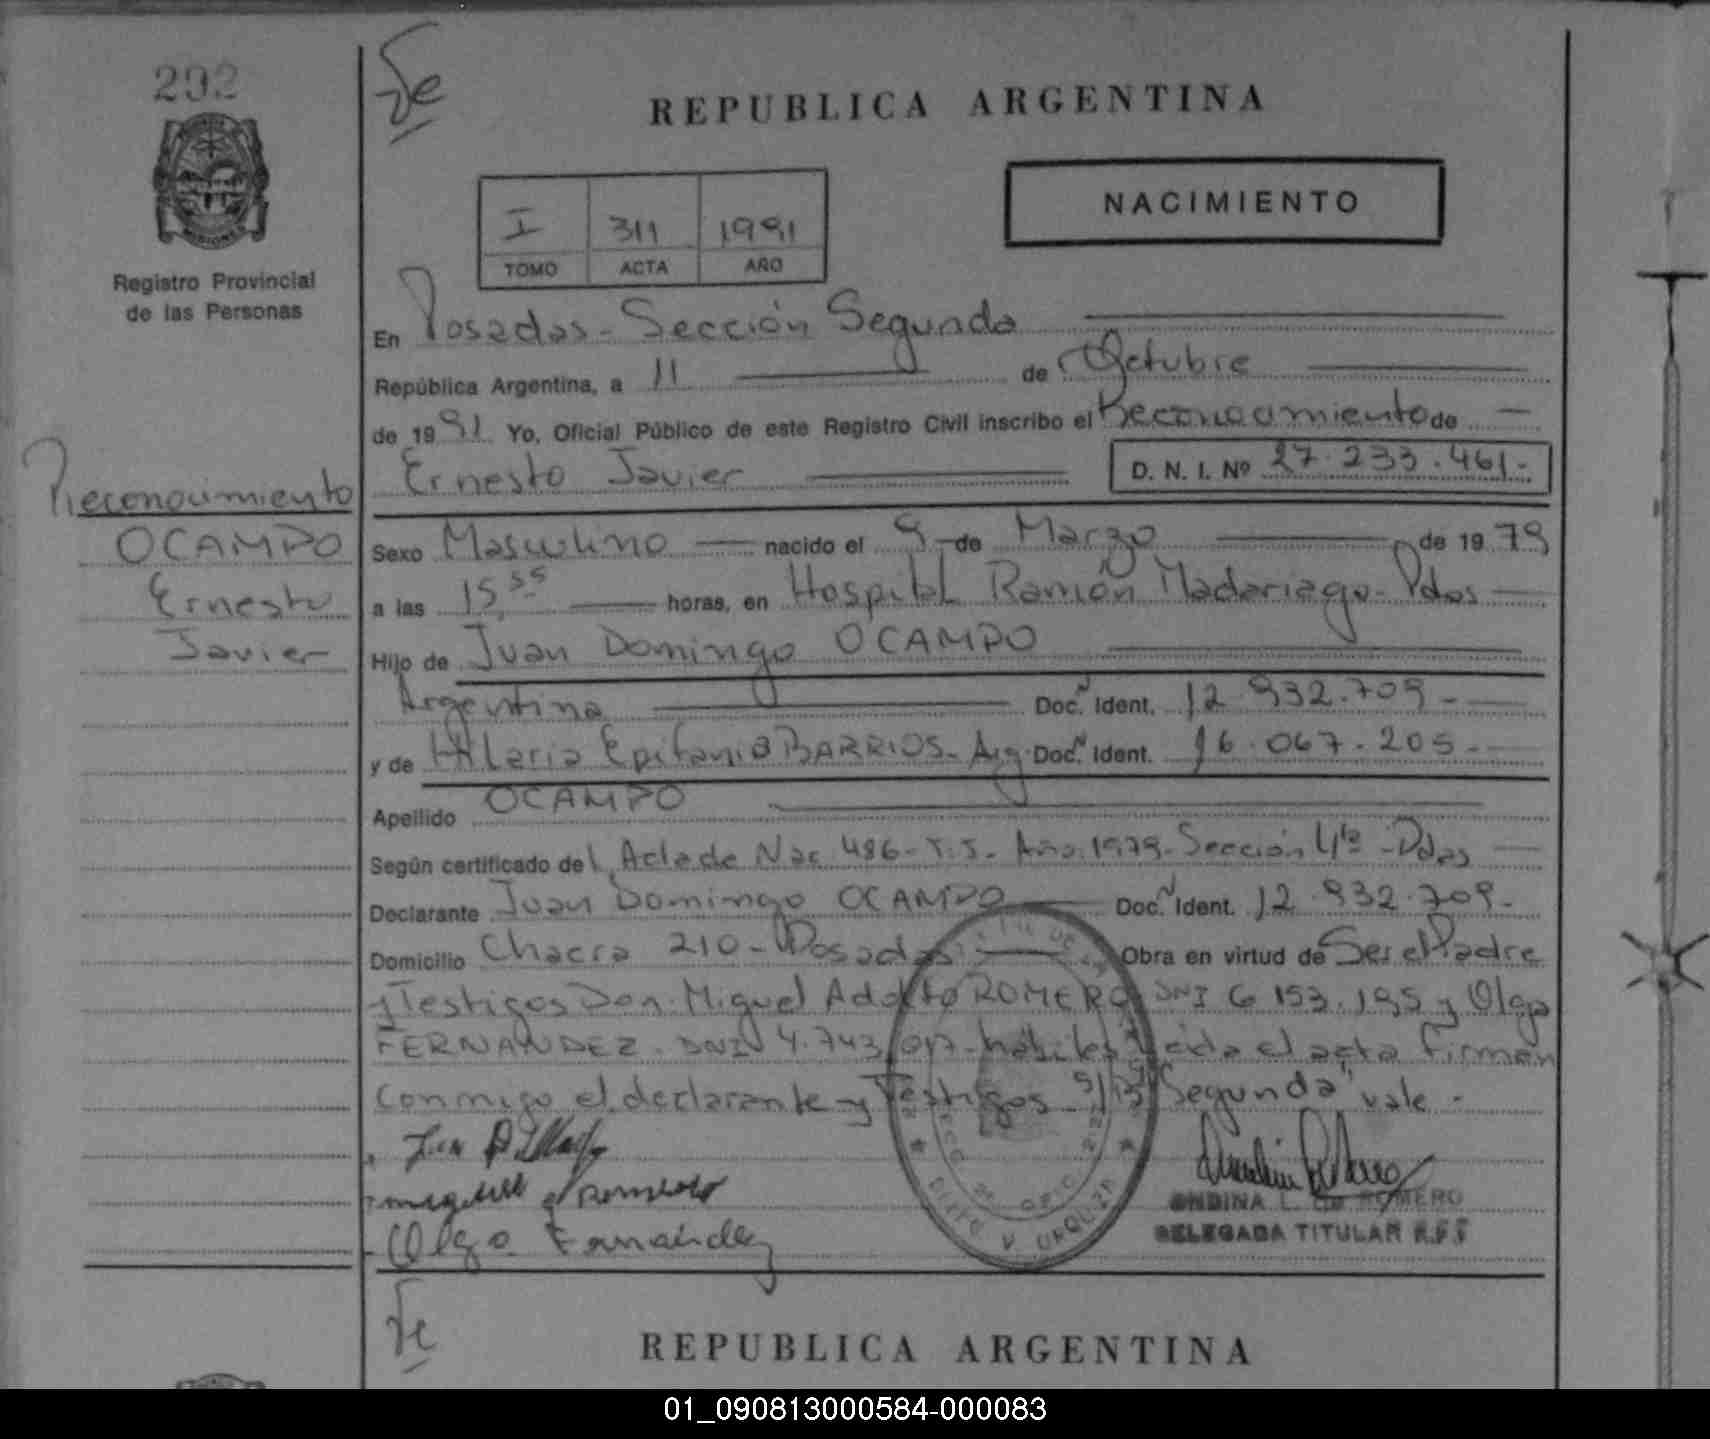 292
REPUBLICA ARGENTINA
I 311 1991
TOMO ACTA AÑO
NACIMIENTO
Registro Provincial
de las Personas
En Posadas - Sección Segunda
República Argentina, a 11 de Octubre
de 1991 Yo, Oficial Público de este Registro Civil inscribo el Reconocimiento de
Ernesto Javier D. N. I. Nº 27.233.461.-
Reconocimiento
OCAMPO
Ernesto
Javier
Sexo Masculino nacido el 9 de Marzo de 1979
a las 15,35 horas, en Hospital Ramón Madariaga - Pdas
Hijo de Juan Domingo OCAMPO
Argentina Doc. Ident. 12.932.709.-
y de Hilaria Epifania BARRIOS - Arg. Doc. Ident. 16.067.205.-
Apellido OCAMPO
Según certificado del Acta de Nac. 486 - T.I - Año 1979 - Sección 4ta - Pdas
Declarante Juan Domingo OCAMPO Doc. Ident. 12.932.709.-
Domicilio Chacra 210 - Posadas Obra en virtud de Ser el Padre
y Testigos Don Miguel Adolfo ROMERO DNI 6.153.195 y Olga
FERNANDEZ. DNI 4.743.017 - hábiles leída el acta firman
conmigo el declarante y Testigos "Segunda" vale.-
Miguel A Romero
Olga Fernández
ROMERO
DELEGADA TITULAR
REPUBLICA ARGENTINA
01_090813000584-000083